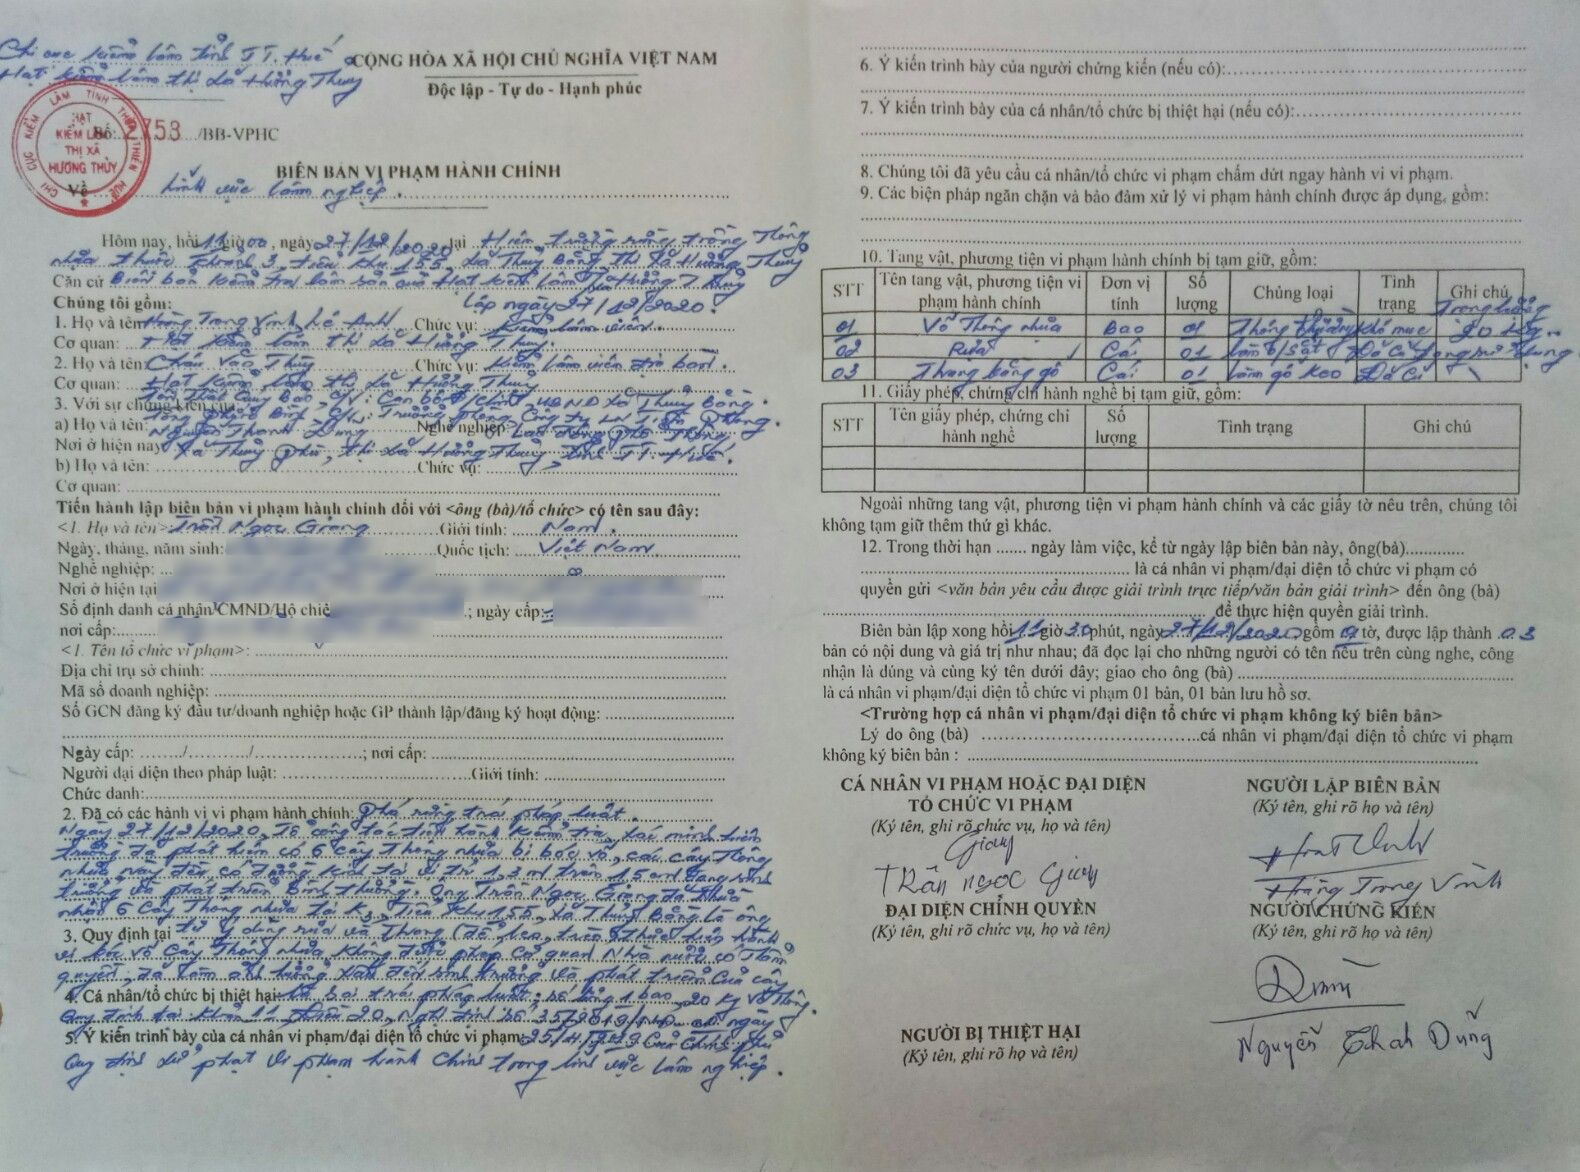 Chi cục kiểm lâm tỉnh TT. Huế
Hạt kiểm lâm thị xã Hương Thủy
CỘNG HÒA XÃ HỘI CHỦ NGHĨA VIỆT NAM
Độc lập - Tự do - Hạnh phúc
CHI CỤC KIỂM LÂM TỈNH THỪA THIÊN HUẾ
HẠT
KIỂM LÂM
THỊ XÃ
HƯƠNG THỦY
Số: 2753 /BB-VPHC
BIÊN BẢN VI PHẠM HÀNH CHÍNH
Về lĩnh vực lâm nghiệp.
Hôm nay, hồi 11 giờ 00, ngày 27/12/2020, tại Hiện trường rừng trồng Thông
nhựa thuộc Khoảnh 3, tiểu khu 155, xã Thủy Bằng, Thị xã Hương Thủy
Căn cứ Biên bản kiểm tra lâm sản của Hạt kiểm lâm Hương Thủy
Chúng tôi gồm: lập ngày 27/12/2020.
1. Họ và tên: Hoàng Trọng Vĩnh, Lê Anh Chức vụ: Kiểm lâm viên.
Cơ quan: Hạt kiểm lâm thị xã Hương Thủy.
2. Họ và tên: Châu Văn Thùy Chức vụ: Kiểm lâm viên địa bàn.
Cơ quan: Hạt kiểm lâm thị xã Hương Thủy
3. Với sự chứng kiến của: Tôn Thất Quý Bao, C/v: Cán bộ UBND xã Thủy Bằng.
a) Họ và tên: Nguyễn Thanh Dũng Nghề nghiệp: Lao động Phổ Thông
Nơi ở hiện nay: Xã Thủy Phù, thị xã Hương Thủy, tỉnh TT. Huế.
b) Họ và tên: Chức vụ:
Cơ quan:
Tiến hành lập biên bản vi phạm hành chính đối với <ông (bà)/tổ chức> có tên sau đây:
<1. Họ và tên>: Trần Ngọc Giang Giới tính: Nam.
Ngày, tháng, năm sinh: Quốc tịch: Việt Nam
Nghề nghiệp:
Nơi ở hiện tại
Số định danh cá nhân/CMND/Hộ chiếu ; ngày cấp:
nơi cấp:
<1. Tên tổ chức vi phạm>:
Địa chỉ trụ sở chính:
Mã số doanh nghiệp:
Số GCN đăng ký đầu tư/doanh nghiệp hoặc GP thành lập/đăng ký hoạt động:
Ngày cấp: / / ; nơi cấp:
Người đại diện theo pháp luật: Giới tính:
Chức danh:
2. Đã có các hành vi vi phạm hành chính: Phá rừng trái pháp luật.
Ngày 27/12/2020, Tổ công tác tiến hành kiểm tra, xác minh hiện
trường đã phát hiện có 6 cây Thông nhựa bị bóc vỏ, các cây Thông
nhựa này đều có đường kính tại vị trí 1,3m trên 15cm đang sinh
trưởng và phát triển Bình thường. Ông Trần Ngọc Giang đã thừa
nhận 6 cây Thông nhựa tại K3, Tiểu khu 155, xã Thủy Bằng là ông
3. Quy định tại tự ý dùng rựa và Thang (để leo trèo) thực hiện hành
vi bóc vỏ cây Thông nhựa không được phép cơ quan Nhà nước có thẩm
quyền, đã làm ảnh hưởng xấu đến sinh trưởng và phát triển của cây
4. Cá nhân/tổ chức bị thiệt hại: là sai trái pháp luật. 1 bao, 20 Kg vỏ Thông.
Quy định tại Khoản 11, Điều 20, Nghị định số 35/2019/NĐ-CP ngày
5. Ý kiến trình bày của cá nhân vi phạm/đại diện tổ chức vi phạm: 25/4/2019 của Chính phủ
Quy định xử phạt vi phạm hành chính trong lĩnh vực lâm nghiệp.
6. Ý kiến trình bày của người chứng kiến (nếu có):
7. Ý kiến trình bày của cá nhân/tổ chức bị thiệt hại (nếu có):
8. Chúng tôi đã yêu cầu cá nhân/tổ chức vi phạm chấm dứt ngay hành vi vi phạm.
9. Các biện pháp ngăn chặn và bảo đảm xử lý vi phạm hành chính được áp dụng, gồm:
10. Tang vật, phương tiện vi phạm hành chính bị tạm giữ, gồm:
STT Tên tang vật, phương tiện vi phạm hành chính Đơn vị tính Số lượng Chủng loại Tình trạng Ghi chú
01 Vỏ Thông nhựa Bao 01 Thông Khô mục Trọng lượng 20 kg
02 Rựa Cái 01 Làm b/sắt Đã cũ
03 Thang bằng gỗ Cái 01 làm gỗ Keo Đã cũ
11. Giấy phép, chứng chỉ hành nghề bị tạm giữ, gồm:
STT Tên giấy phép, chứng chỉ hành nghề Số lượng Tình trạng Ghi chú
Ngoài những tang vật, phương tiện vi phạm hành chính và các giấy tờ nêu trên, chúng tôi
không tạm giữ thêm thứ gì khác.
12. Trong thời hạn ....... ngày làm việc, kể từ ngày lập biên bản này, ông(bà)
là cá nhân vi phạm/đại diện tổ chức vi phạm có
quyền gửi <văn bản yêu cầu được giải trình trực tiếp/văn bản giải trình> đến ông (bà)
để thực hiện quyền giải trình.
Biên bản lập xong hồi 11 giờ 30 phút, ngày 27/12/2020 gồm 01 tờ, được lập thành 03
bản có nội dung và giá trị như nhau; đã đọc lại cho những người có tên nêu trên cùng nghe, công
nhận là đúng và cùng ký tên dưới đây; giao cho ông (bà)
là cá nhân vi phạm/đại diện tổ chức vi phạm 01 bản, 01 bản lưu hồ sơ.
<Trường hợp cá nhân vi phạm/đại diện tổ chức vi phạm không ký biên bản>
Lý do ông (bà) cá nhân vi phạm/đại diện tổ chức vi phạm
không ký biên bản :
CÁ NHÂN VI PHẠM HOẶC ĐẠI DIỆN
TỔ CHỨC VI PHẠM
(Ký tên, ghi rõ chức vụ, họ và tên)
Giang
Trần ngọc Giang
NGƯỜI LẬP BIÊN BẢN
(Ký tên, ghi rõ họ và tên)
Hoàng Trọng Vĩnh
ĐẠI DIỆN CHÍNH QUYỀN
(Ký tên, ghi rõ chức vụ, họ và tên)
NGƯỜI CHỨNG KIẾN
(Ký tên, ghi rõ họ và tên)
Dũng
Nguyễn Thanh Dũng
NGƯỜI BỊ THIỆT HẠI
(Ký tên, ghi rõ họ và tên)